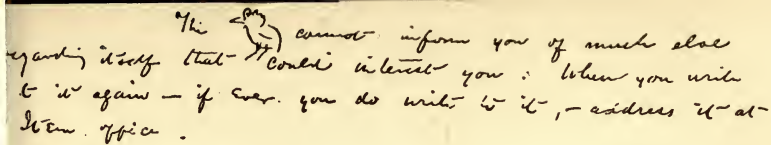 This cannot inform you of much else
regarding itself that it could interest you: When you write
to it again – if ever you do write to it, – address it at
Item office.